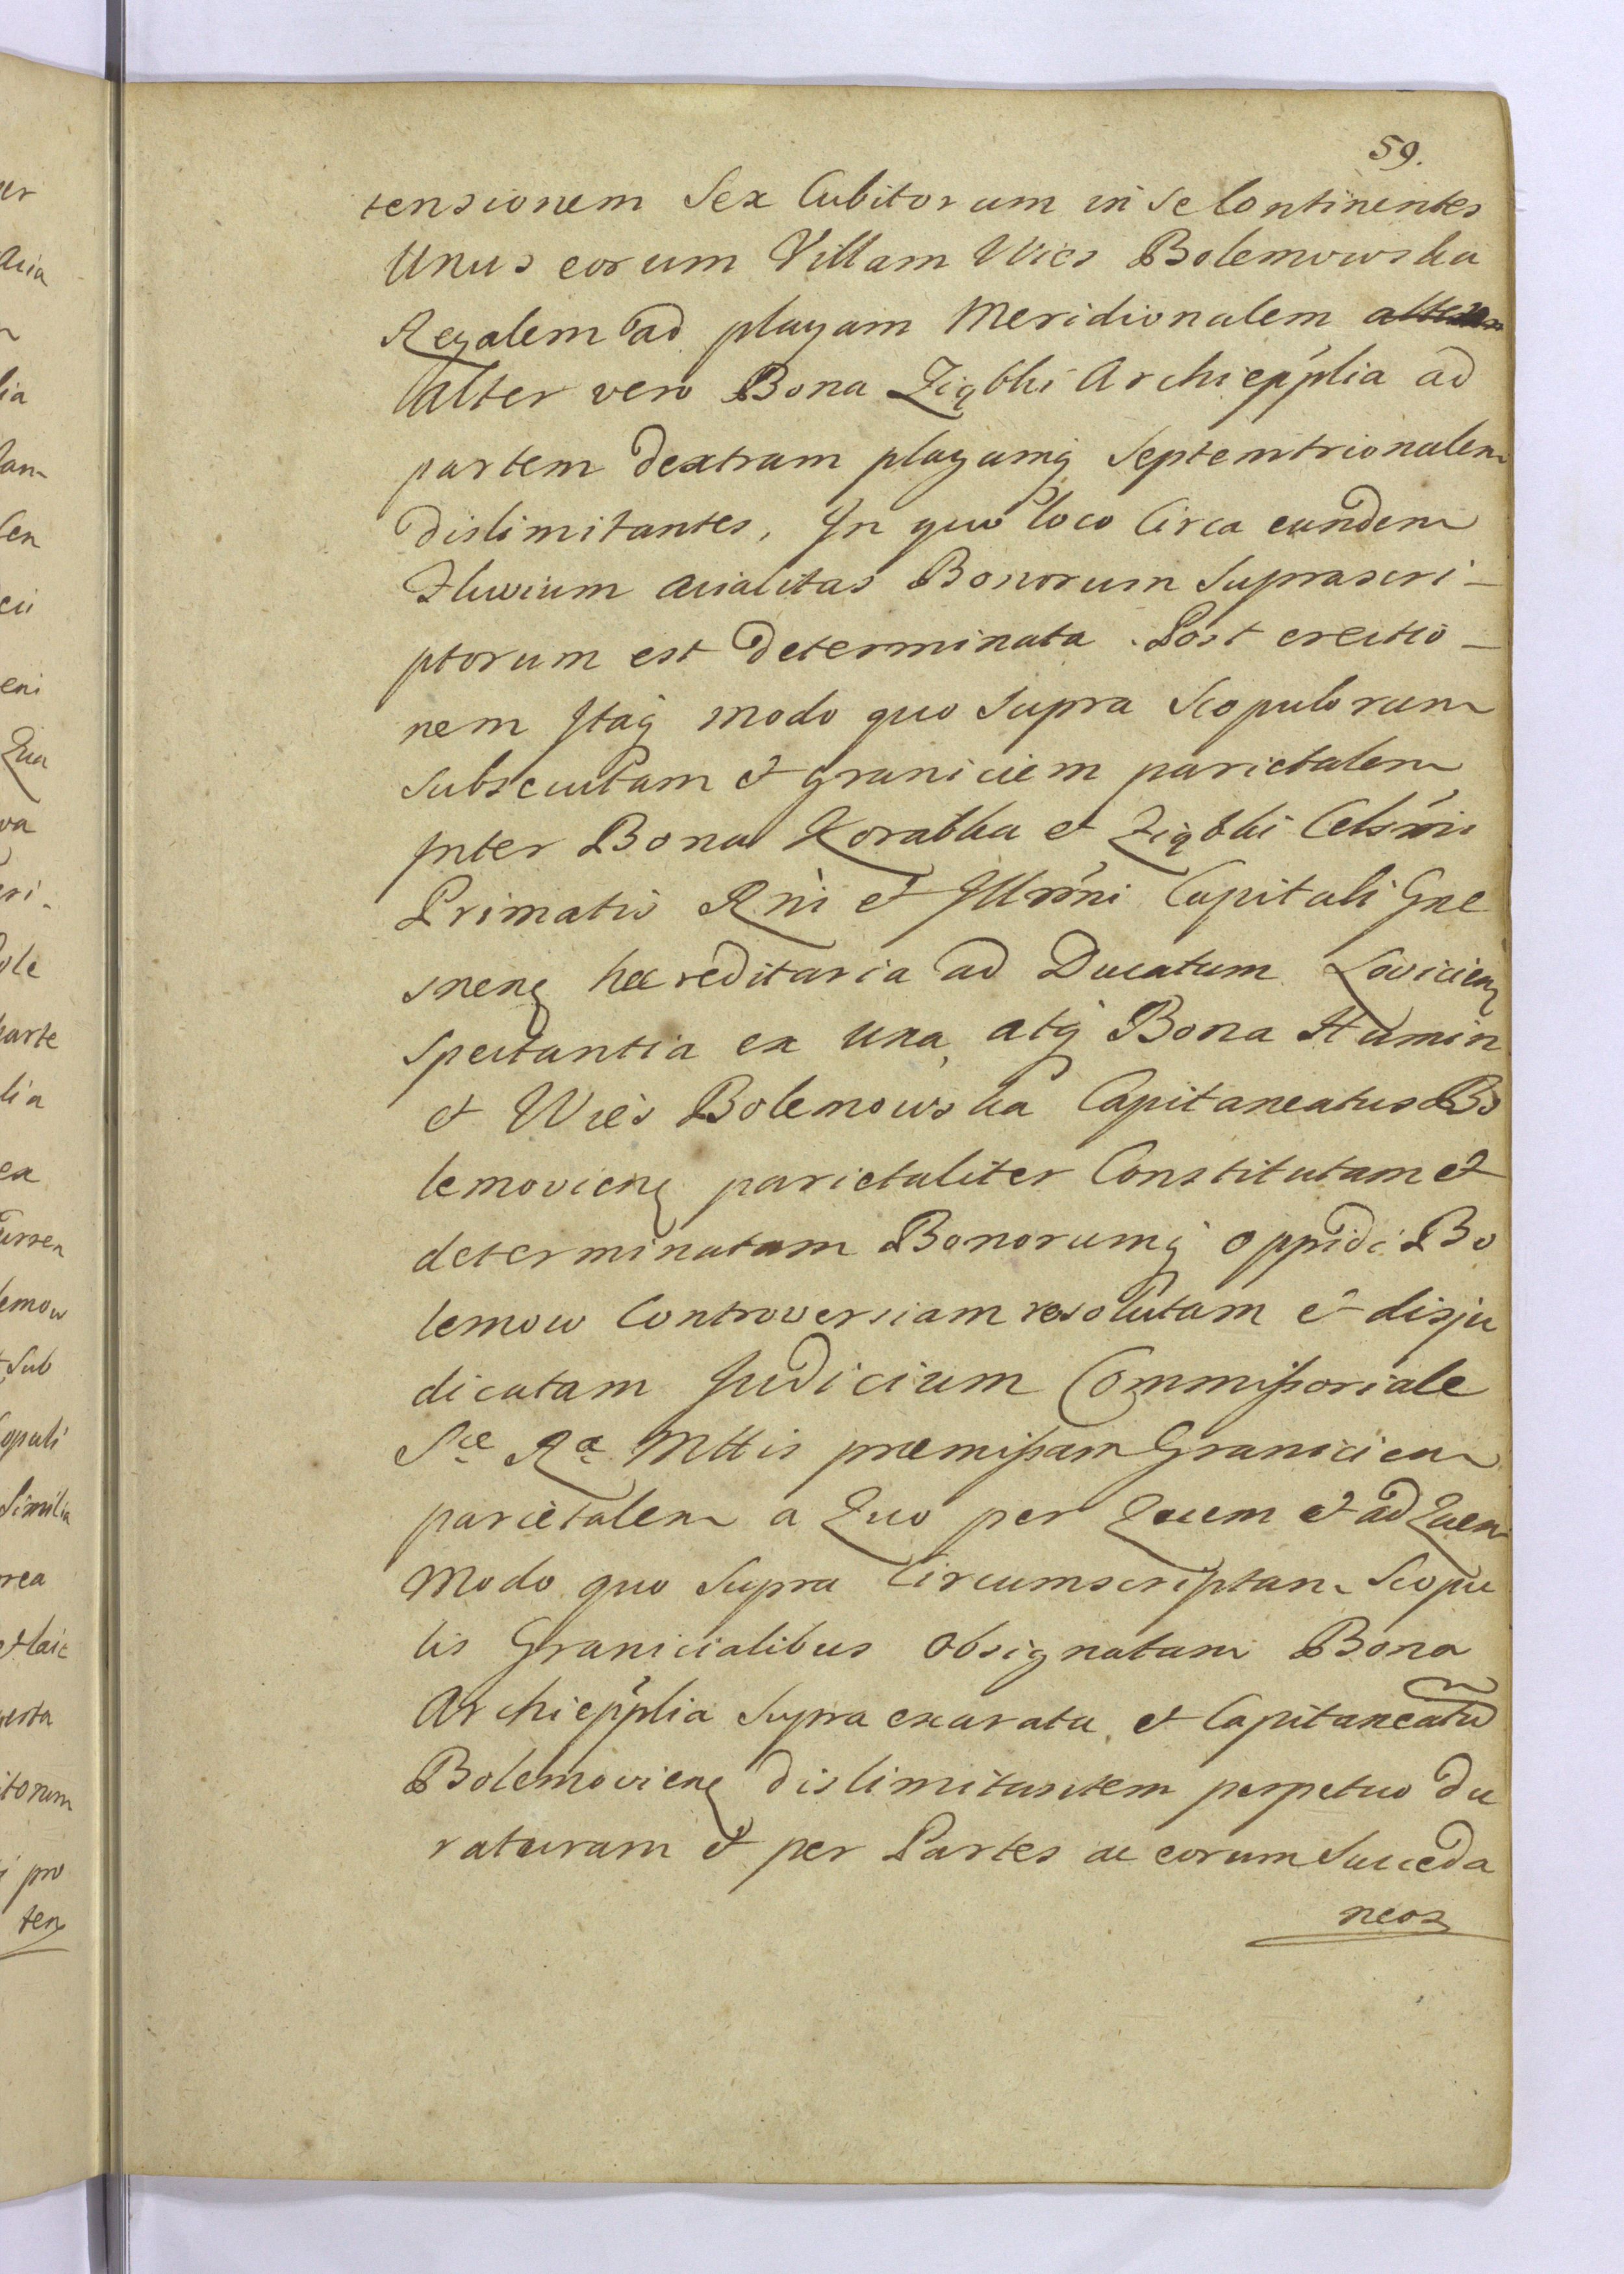 59.
tensionem Sex Cubitorum in se Continentes
Unus eorum Villam Wies Bolemowska
Regalem ad plagam Meridionalem
Alter vero Bona Ziąbki Archiepplia ad
partem dextram plagamq Septemtrionalem
dislimitantes, In quo loco Circa eundem
Fluvium acialitas Bonorum Suprascri-
ptorum est determinata. Post erectio-
nem Itaq modo quo Supra Scopulorum
subsecutam et graniciem parietalem
Inter Bona Korabka et Ziąbki Celsmi
Primatis Rni et Illrmi Capituli Gne
snenę haereditaria ad Ducatum Lovicienę
spectantia ex una, atq Bona Humin
et Wies Bolemowska Capitaneatus Bo
lemovienę parietaliter Constitutam et
determinatam Bonorumq oppidi Bo
lemow Controversiam resolutam et disju
dicatam Judicium Commissoriale
Sae Rae Mttis praemissam Graniciem
parietalem a Quo per Quem et ad Quem
Modo quo Supra Circumscriptam Scopu
lis Granicialibus obsignatam Bona
Archiepplia Supra exarata, et Capitaneatu
Bolemovienę dislimitantem perpetuo du
raturam et per Partes ac eorum Succeda
neos